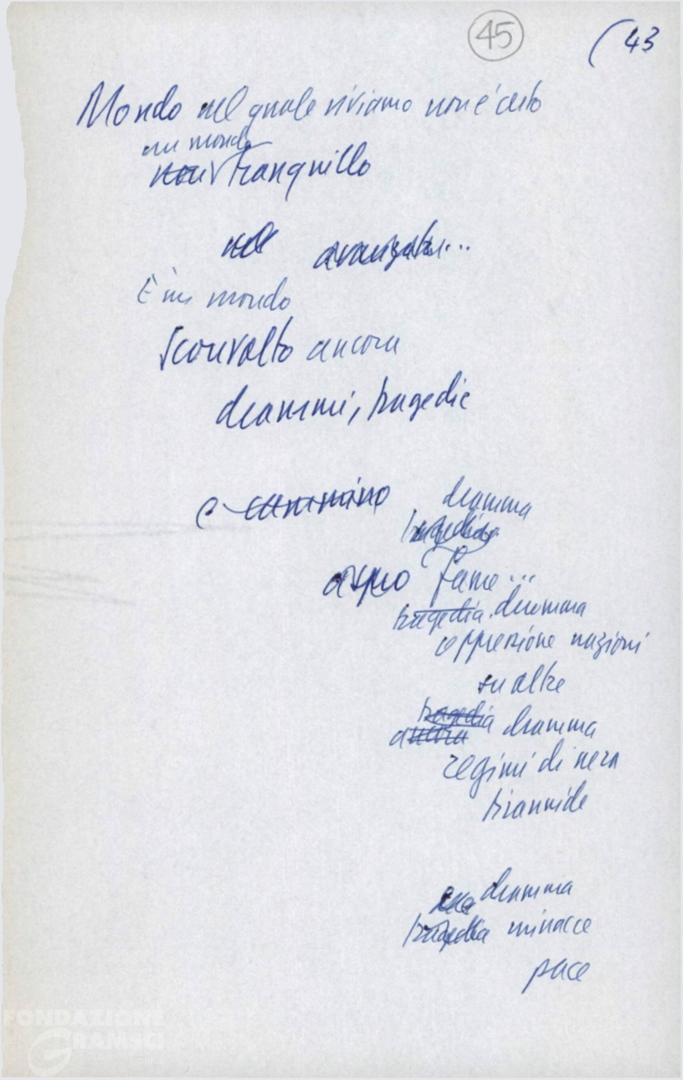 45
(43
Mondo nel quale viviamo non è certo
un mondo
non tranquillo
nel avanzata...
È un mondo
sconvolto ancora
drammi, tragedie
e cammino
dramma
tragedia
aspro fame...
tragedia dramma
oppressione nazioni
su altre
tragedia
ancora dramma
regimi di nera
tirannide
dramma
tragedia minacce
pace
FONDAZIONE
GRAMSCI